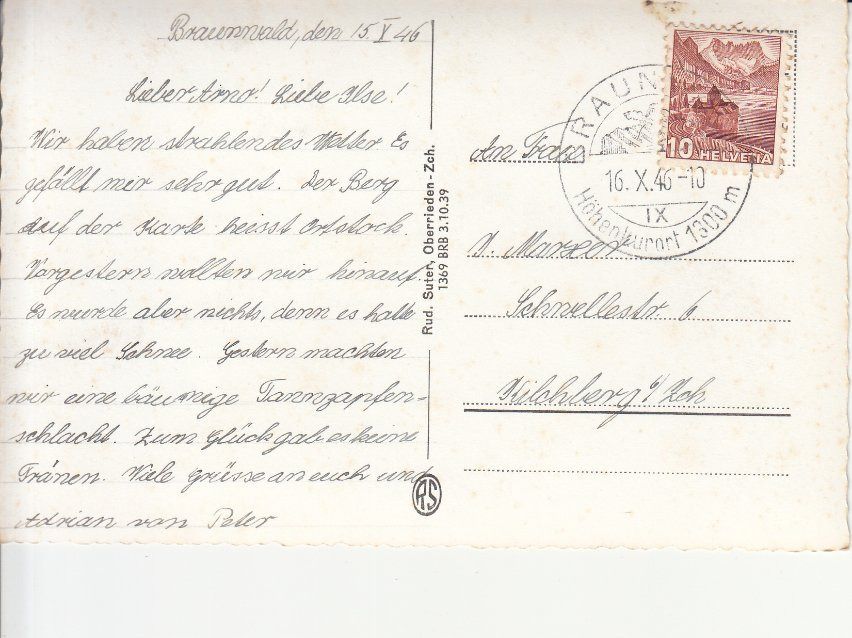 Braunwald, den 15. X 46
Lieber Arno! Liebe Ilse!
Wir haben strahlendes Wetter Es
gefällt mir sehr gut. Der Berg
auf der Karte heisst Ortstock.
Vorgestern wollten wir hinauf.
Es wurde aber nichts, denn es hatte
zu viel Schnee. Gestern machten
wir eine bäumige Tannzapfen-
schlacht. Zum Glück gab es keine
Tränen. Viele Grüsse an euch und
Adrian von Peter
Rud. Suter, Oberrieden-Zch.
1369 BRB 3.10.39
RS
BRAUN
16. X. 46-10
IX
Höhenkurort 1300 m
10 HELVETIA
An Frau
Schwellestr. 6
Kilchberg b/Zch